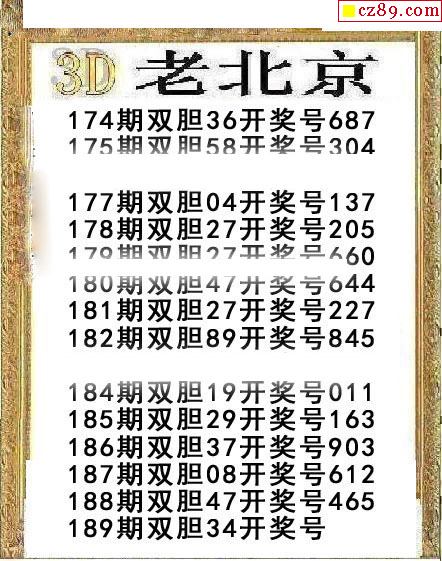 cz89.com
3D 老北京
174期双胆36开奖号687
175期双胆58开奖号304
177期双胆04开奖号137
178期双胆27开奖号205
179期双胆27开奖号660
180期双胆47开奖号644
181期双胆27开奖号227
182期双胆89开奖号845
184期双胆19开奖号011
185期双胆29开奖号163
186期双胆37开奖号903
187期双胆08开奖号612
188期双胆47开奖号465
189期双胆34开奖号